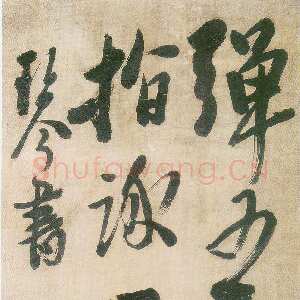 弹五
指詠
琴書
Shufawang.CN